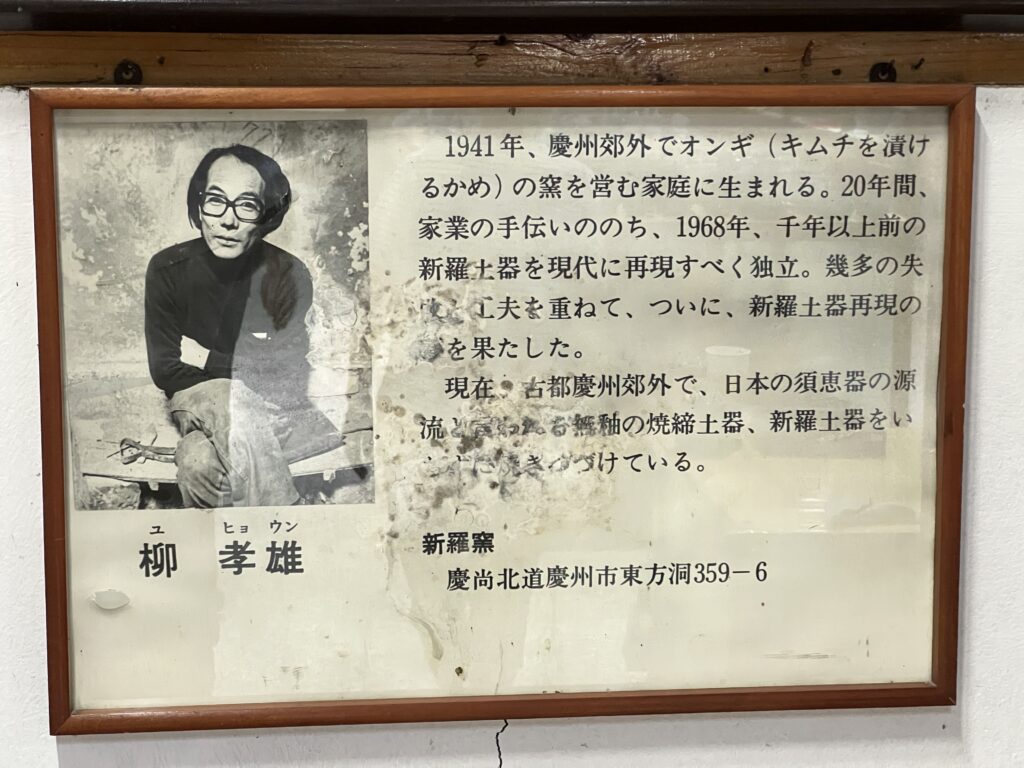 1941年、慶州郊外でオンギ（キムチを漬け
るかめ）の窯を営む家庭に生まれる。20年間、
家業の手伝いののち、1968年、千年以上前の
新羅土器を現代に再現すべく独立。幾多の失
工夫を重ねて、ついに、新羅土器再現の
を果たした。
現在、古都慶州郊外で、日本の須恵器の源
流と言われる無釉の焼締土器、新羅土器をい
つづけている。
ユ ヒョ ウン
柳 孝雄
新羅窯
慶尚北道慶州市東方洞359−6